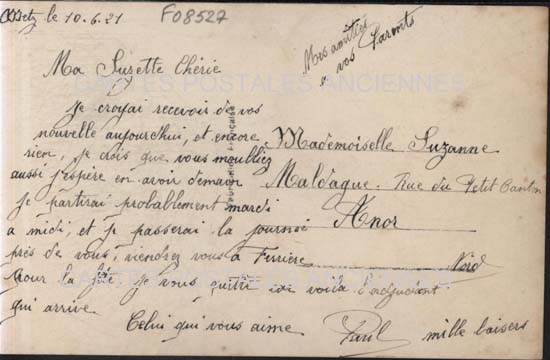 Metz le 10.6.21
F08527
Mes amitiés
à vos Parents
CARTES POSTALES ANCIENNES
Ma Suzette Chérie
Je croyai recevoir de vos
nouvelle aujourd'hui, et encore
rien, je dois que vous m'oubliez
aussi j'espère en avoir demain
je partirai probablement mardi
a midi, et je passerai la journée
près de vous, viendrez vous à Firrière
Pour la fête je vous quitte voila l'adjudant
qui arrive
Celui qui vous aime
Paul mille baisers
Mademoiselle Suzanne
Maldague. Rue du Petit Canton
Anor
Nord